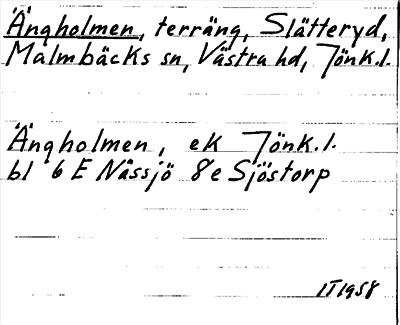 Ängholmen, terräng, Slätteryd,
Malmbäcks sn, Västra hd, Jönk.l.
Ängholmen, ek Jönk.l.
bl 6 E Nässjö 8e Sjöstorp
IT 1958